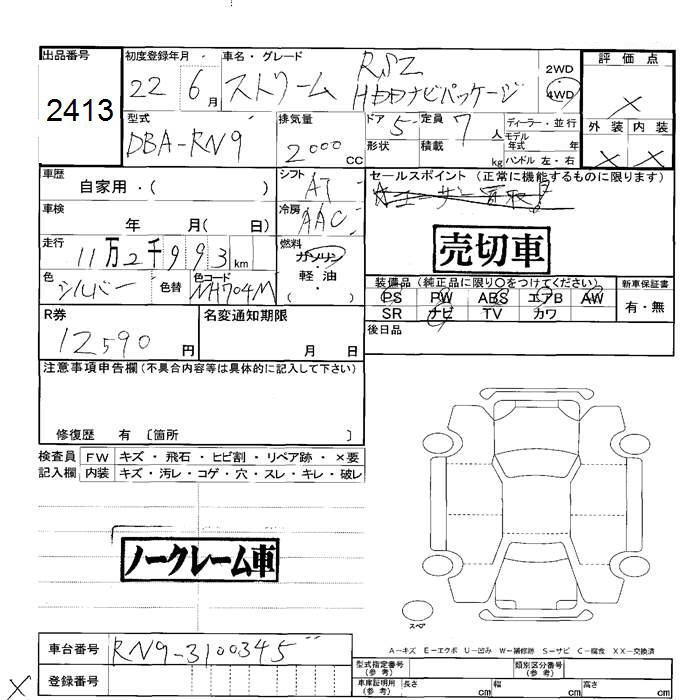 出品番号
2413
初度登録年月
22 6月
車名・グレード
ストリーム RSZ
HDDナビパッケージ
2WD
4WD
評価点
×
外装 内装
× ×
型式
DBA-RN9
排気量
2000cc
ドア 5 定員 7人
形状 積載 kg
ディーラー・並行
モデル年式 年
ハンドル 左・右
車歴
自家用・( )
シフト AT
セールスポイント (正常に機能するものに限ります)
車検 年 月( 日)
冷房 AAC
売切車
走行 11万2千993km
燃料
ガソリン
・
軽油
( )
色 シルバー 色替 色コード NH704M
装備品 (純正品に限り○をつけてください)
PS PW ABS エアB AW
SR ナビ TV カワ
新車保証書
有・無
後日品
R券
12590円
名変通知期限
月 日
注意事項申告欄(不具合内容等は具体的に記入して下さい)
修復歴 有 〔箇所 〕
検査員記入欄
FW キズ・飛石・ヒビ割・リペア跡・×要
内装 キズ・汚レ・コゲ・穴・スレ・キレ・破レ
ノークレーム車
スペア
A-キズ E-エクボ U-凹み W-補修跡 S-サビ C-腐食 XX-交換済
車台番号 RN9-3100345
登録番号
×
型式指定番号(参考)
類別区分番号(参考)
車庫証明用(参考) 長さ cm 幅 cm 高さ cm